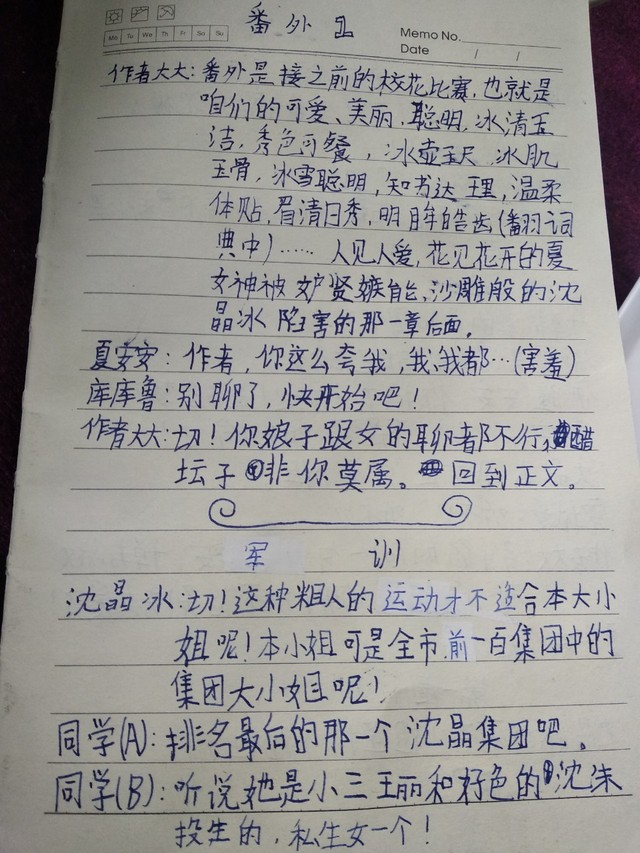 番外1
Memo No.
Mo Tu We Th Fr Sa Su
Date / /
作者大大：番外是接之前的校花比赛，也就是
咱们的可爱、美丽、聪明，冰清玉
洁，秀色可餐，冰壶玉尺，冰肌
玉骨，冰雪聪明，知书达理，温柔
体贴，眉清目秀，明眸皓齿(翻羽词
典中)……人见人爱，花见花开的夏
女神被妒贤嫉能、沙雕般的沈
晶冰陷害的那一章后面。
夏安安：作者，你这么夸我，我、我都…(害羞)
库库鲁：别聊了，快开始吧！
作者大大：切！你娘子跟女的聊都不行，醋
坛子非你莫属。回到正文。
军 训
沈晶冰：切！这种粗人的运动才不适合本大小
姐呢！本小姐可是全市前一百集团中的
集团大小姐呢！
同学(A)：排名最后的那一个沈晶集团吧。
同学(B)：听说她是小三王丽和好色的沈朱
投生的，私生女一个！